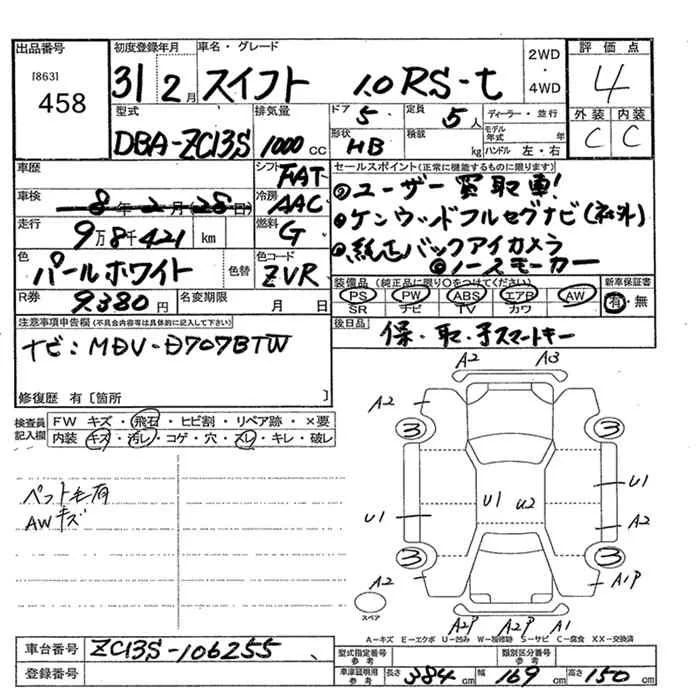 出品番号 初度登録年月 車名・グレード 2WD・4WD 評価点
[863] 458 31 2月 スイフト 1.0RS-t 4
型式 排気量 ドア 5 定員 5人 ディーラー・並行 外装 内装
DBA-ZC13S 1000cc 形状 HB 積載 kg モデル年式 年 ハンドル 左・右 C C
車歴 シフト FAT セールスポイント(正常に機能するものに限ります)
車検 8年2月(28日) 冷房 AAC ユーザー買取車!
走行 9万8千421 km 燃料 G ケンウッドフルセグナビ(社外)
色 パールホワイト 色替 色コード ZVR 純正バックアイカメラ
ノースモーカー
R券 9,380円 名変期限 月 日 装備品(純正品に限り○をつけてください) 新車保証書
PS PW ABS エアB AW 有・無
SR ナビ TV カワ
注意事項申告欄(不具合内容等は具体的に記入して下さい) 後日品 保・取・予スマートキー
ナビ:MDV-D707BTW
修復歴 有[箇所 ]
検査員記入欄 FW キズ・飛石・ヒビ割・リペア跡・×要
内装 キズ・汚レ・コゲ・穴・スレ・キレ・破レ
A2 A3
A2
3 3
ペット毛有
AWキズ
U1 U1 U2 U1
A2
3 3
A2 A1P
スペア
A2P A2P A1
A-キズ E-エクボ U-凹み W-補修跡 S-サビ C-腐食 XX-交換済
車台番号 ZC13S-106255 型式指定番号 参考 類別区分番号 参考
登録番号 車庫証明用 参考 長さ 384cm 幅 169cm 高さ 150cm